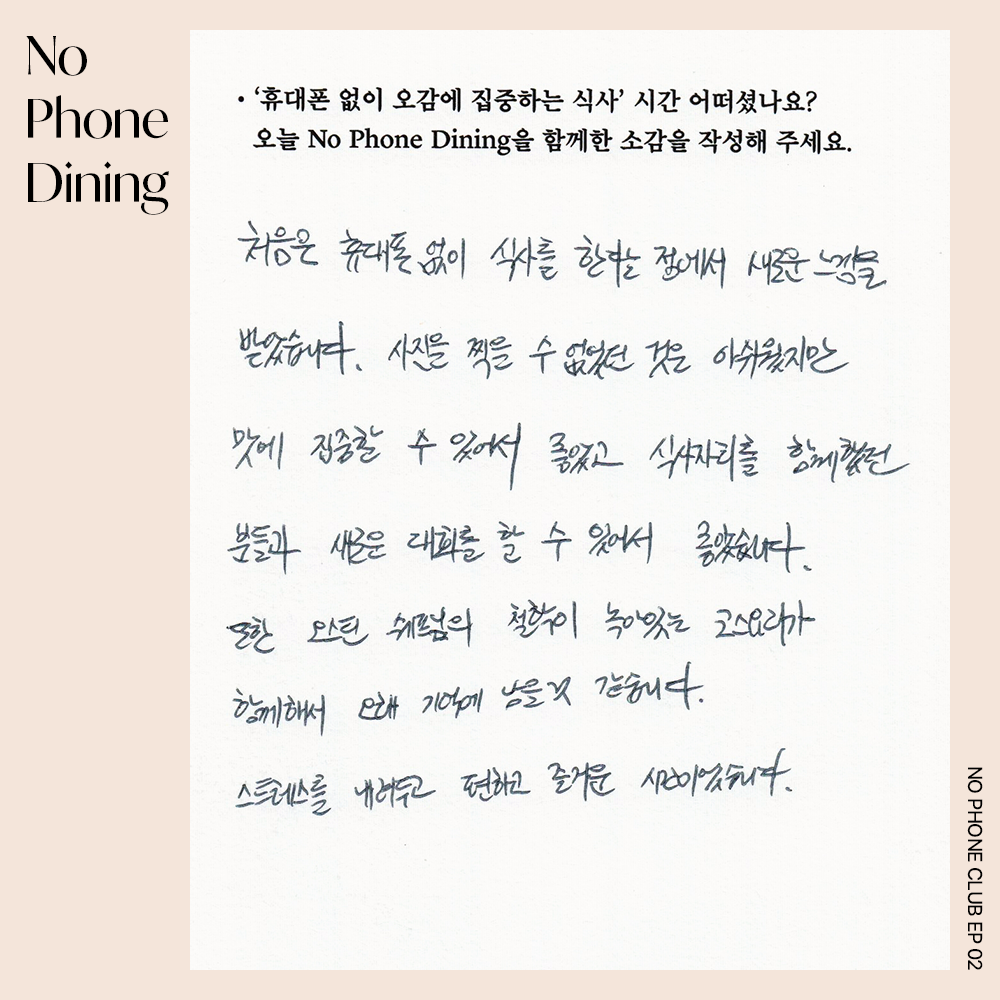 No
Phone
Dining
• ‘휴대폰 없이 오감에 집중하는 식사’ 시간 어떠셨나요?
오늘 No Phone Dining을 함께한 소감을 작성해 주세요.
처음은 휴대폰 없이 식사를 한다는 점에서 새로운 느낌을
받았습니다. 사진을 찍을 수 없었던 것은 아쉬웠지만
맛에 집중할 수 있어서 좋았고 식사자리를 함께했던
분들과 새로운 대화를 할 수 있어서 좋았습니다.
또한 오스틴 쉐프님의 철학이 녹아있는 코스요리가
함께해서 오래 기억에 남을 것 같습니다.
스트레스를 내려두고 편하고 즐거운 시간이었습니다.
NO PHONE CLUB EP 02